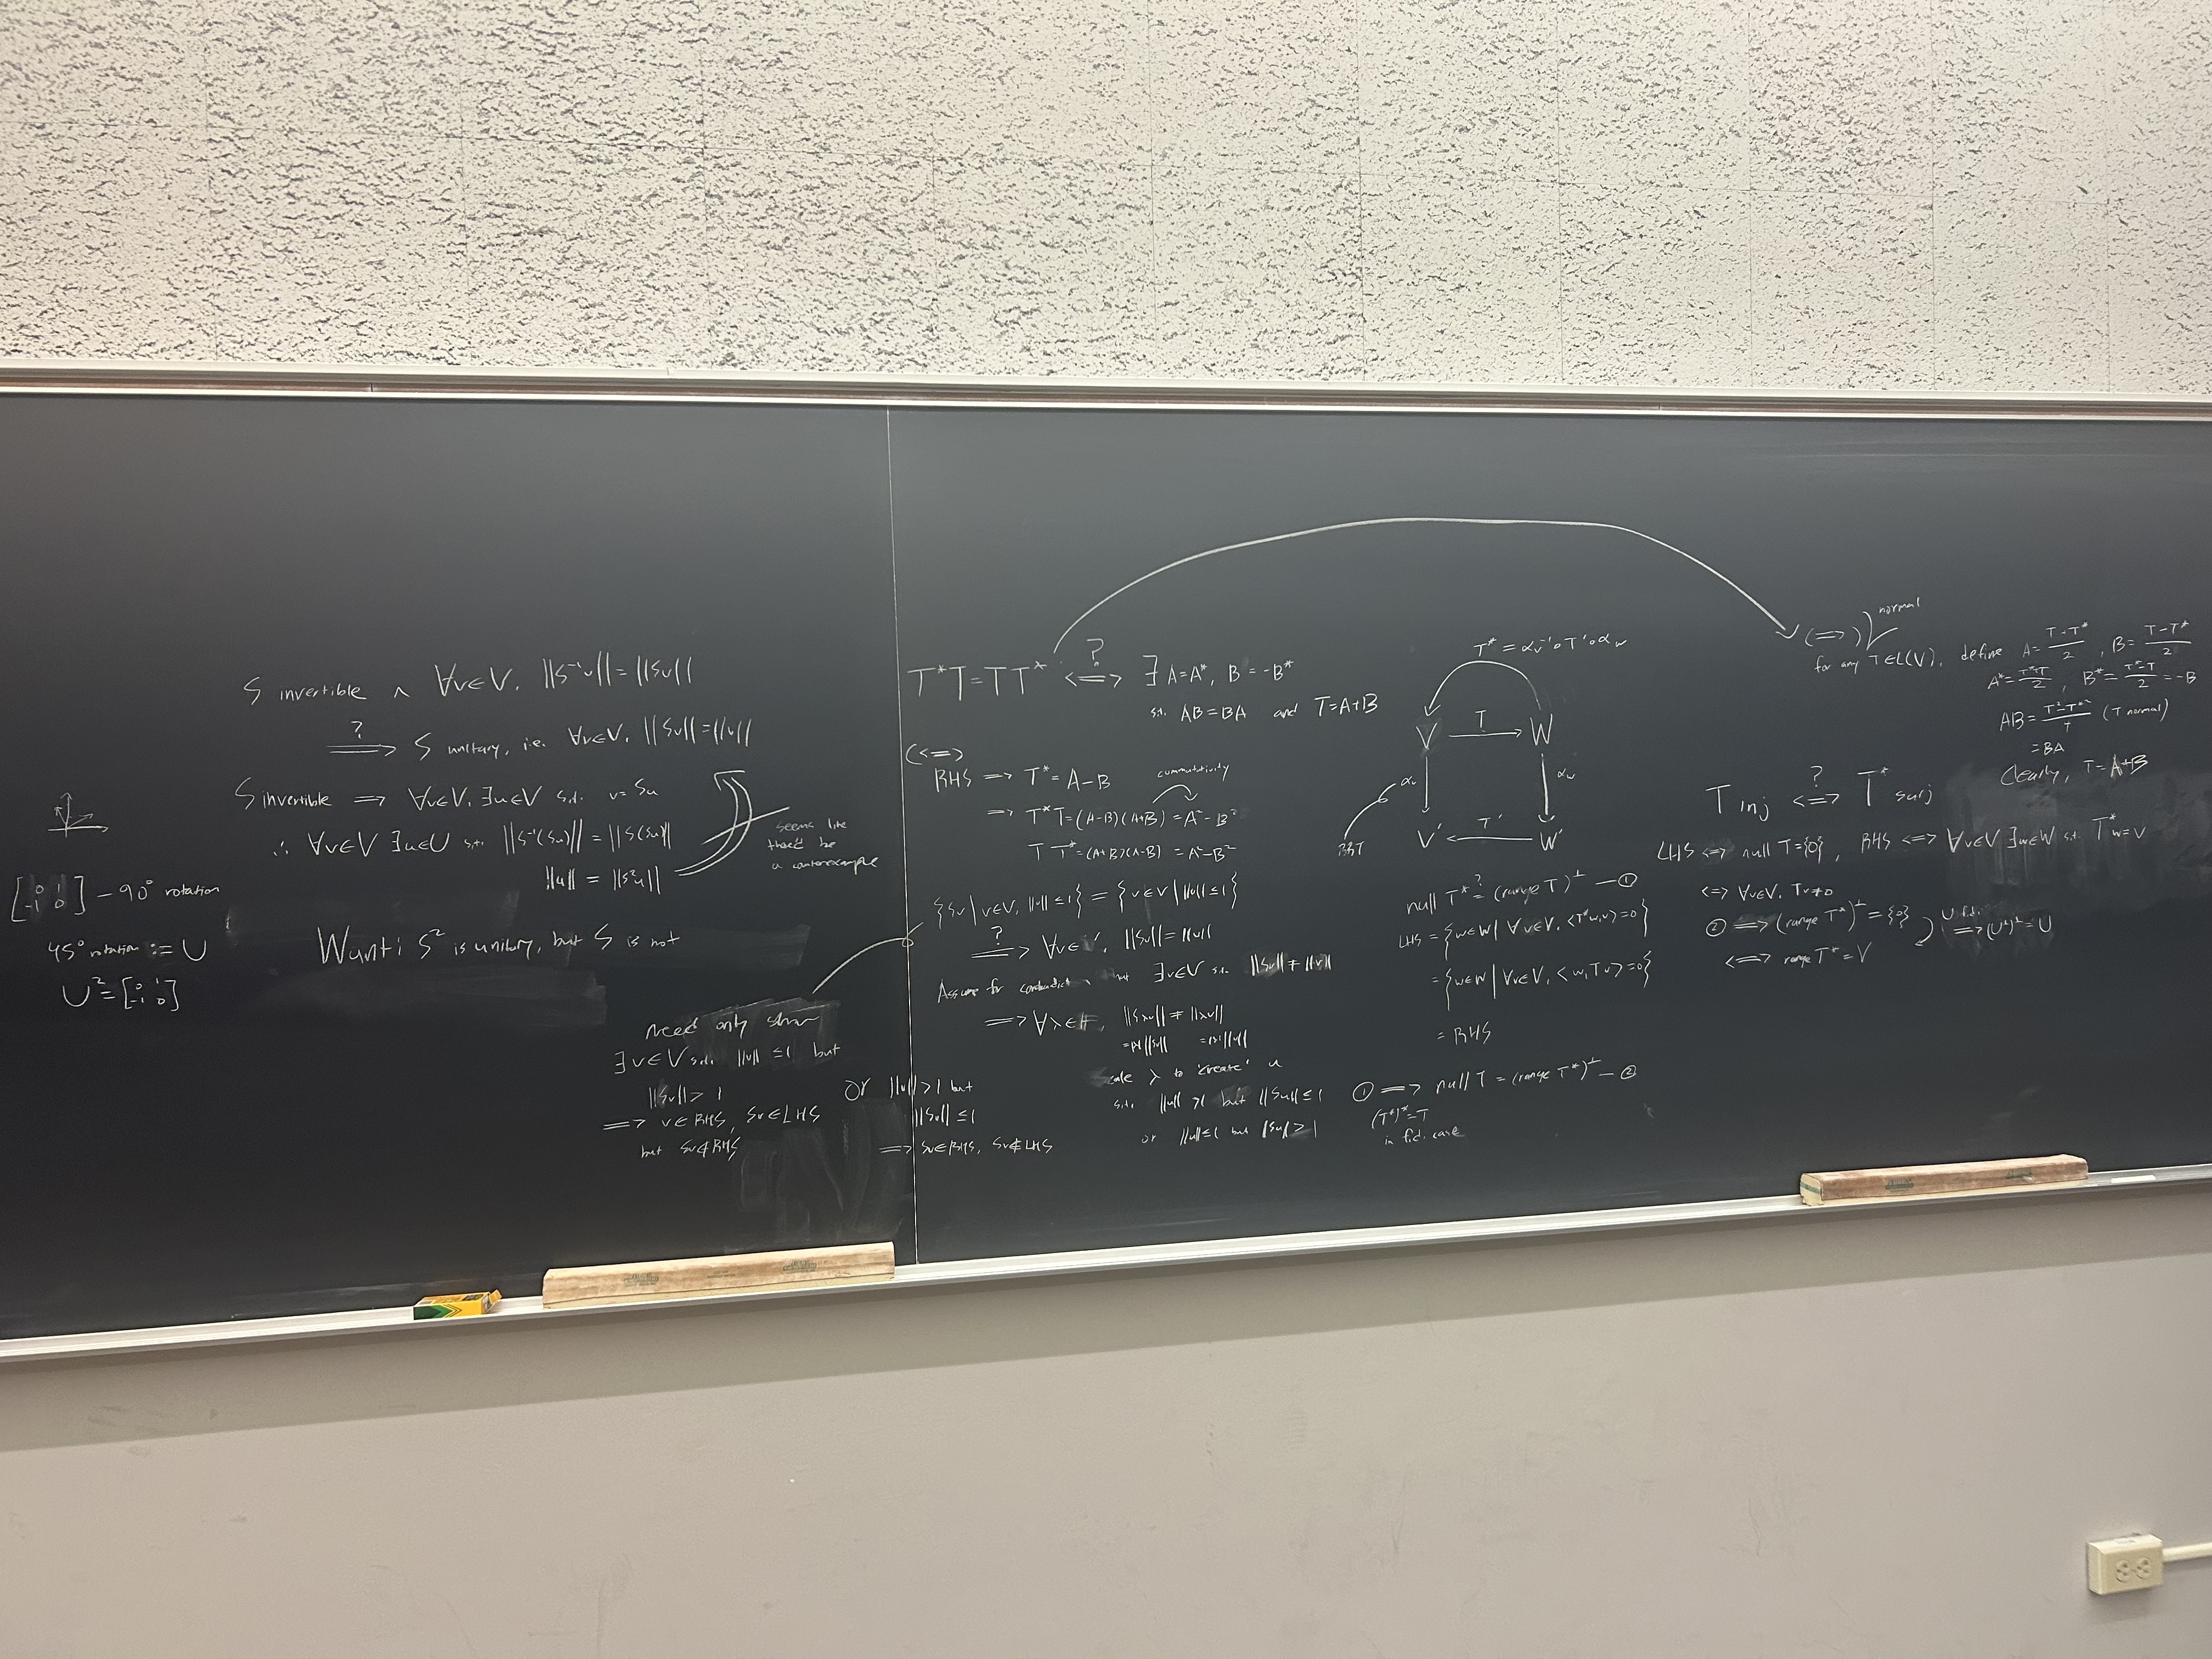 S invertible ∧ ∀v∈V. ||S⁻¹v|| = ||Sv||
?
⟹ S unitary, i.e. ∀v∈V. ||Sv|| = ||v||
S invertible ⟹ ∀v∈V. ∃u∈V s.t. v = Su
∴ ∀v∈V ∃u∈U s.t. ||S⁻¹(Su)|| = ||S(Su)||
||u|| = ||S²u||
seems like
there'd be
a counterexample
[0 1; -1 0] - 90° rotation
45° rotation := U
U² = [0 1; -1 0]
Want: S² is unitary, but S is not
need only show
∃v∈V s.t. ||v|| ≤ 1 but
||Sv|| > 1
⟹ v∈RHS, Sv∈LHS
but Sv∉RHS
or ||v|| > 1 but
||Sv|| ≤ 1
⟹ Sv∈RHS, Sv∉LHS
T*T = TT* ?⟺ ∃ A=A*, B=-B*
s.t. AB=BA and T=A+B
(⟸)
RHS ⟹ T* = A-B
commutativity
⟹ T*T = (A-B)(A+B) = A²-B²
TT* = (A+B)(A-B) = A²-B²
{Sv | v∈V, ||v|| ≤ 1} = {v∈V | ||v|| ≤ 1}
?
⟹ ∀v∈V, ||Sv|| = ||v||
Assume for ∃v∈V s.t. ||Sv|| ≠ ||v||
⟹ ∀λ∈F, ||Sλv|| ≠ ||λv||
= |λ| ||Sv|| = |λ| ||v||
scale λ to 'create' u
s.t. ||u|| > 1 but ||Su|| ≤ 1
or ||u|| ≤ 1 but ||Su|| > 1
T* = αv⁻¹∘T'∘αw
V T W
αv αw
RRT
V' T' W'
null T* ?= (range T)⊥ — ①
LHS = {w∈W | ∀v∈V, <T*w,v> = 0}
= {w∈W | ∀v∈V, <w,Tv> = 0}
= RHS
① ⟹ null T = (range T*)⊥ — ②
(T*)* = T
in f.d. case
(⟹) normal
for any T∈L(V), define A = T+T*/2, B = T-T*/2
A* = T*+T/2, B* = T*-T/2 = -B
AB = T²-T*²/T (T normal)
= BA
Clearly, T = A+B
T inj ?⟺ T* surj
LHS ⟺ null T = {0}, RHS ⟺ ∀v∈V ∃w∈W s.t. T*w = v
⟺ ∀v∈V, Tv≠0
② ⟹ (range T*)⊥ = {0}
U f.d.
⟹ (U⊥)⊥ = U
⟺ range T* = V